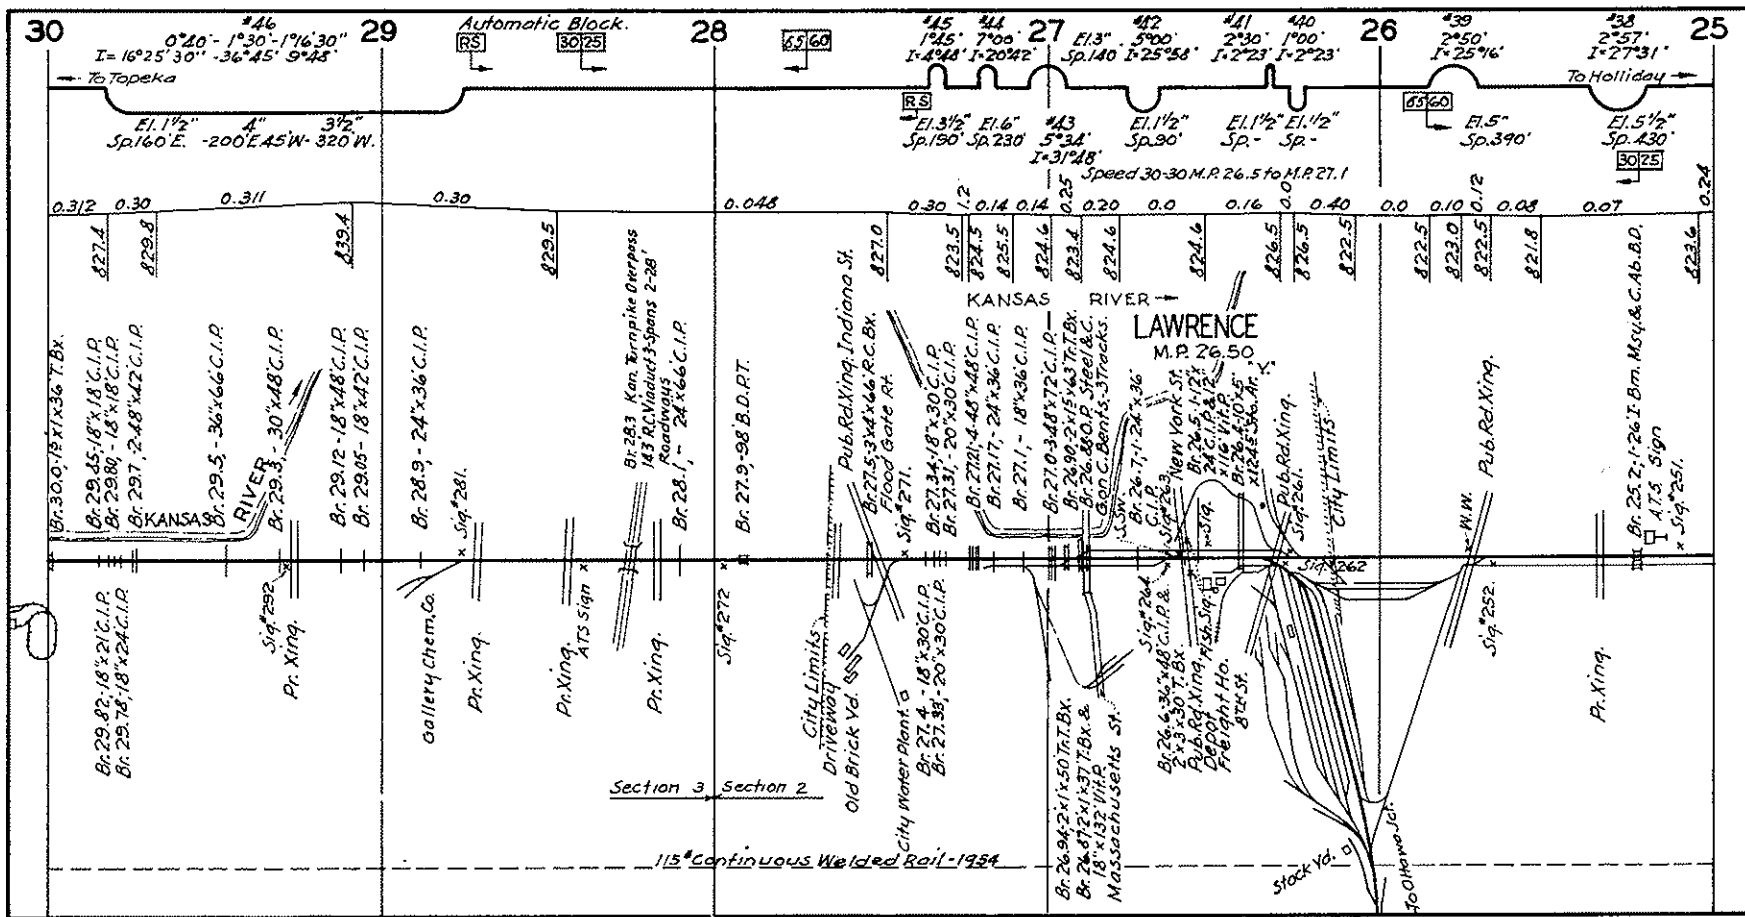 30
#46
0°40' - 1°30' - 1°16'30"
I= 16°25'30" -36°45' 9°48'
29
Automatic Block.
RS
30 25
28
65 60
#45
1°45'
I=4°48'
#44
7°00'
I=20°42'
27
El.3"
Sp.140
#42
5°00'
I=25°58'
#41
2°30'
I=2°23'
#40
1°00'
I=2°23'
26
#39
2°50'
I=25°16'
#38
2°57'
I=27°31'
25
To Topeka
To Holliday
El. 1½" 4" 3½"
Sp.160'E. -200'E.45'W- 320'W.
RS
El.3½"
Sp.190'
El.6"
Sp.230'
#43
5°34'
I=31°48'
El.1½"
Sp.90'
El.1½"
Sp.-
El.½"
Sp.-
65 60
El.5"
Sp.390'
El.5½"
Sp.430'
30 25
Speed 30-30 M.P. 26.5 to M.P. 27.1
0.312 0.30 0.311 0.30 0.048 0.30 1.2 0.14 0.14 0.25 0.20 0.0 0.16 0.0 0.40 0.0 0.10 0.12 0.08 0.07 0.24
827.4
829.8
839.4
829.5
827.0
823.5
824.5
825.5
824.6
823.4
824.6
824.6
826.5
826.5
822.5
822.5
823.0
822.5
821.8
823.6
KANSAS RIVER
LAWRENCE
M.P. 26.50
Br. 29.85,-18"x18'C.I.P.
Br. 29.80,-18"x18'C.I.P.
Br. 29.7,-2-48"x42'C.I.P.
Br. 29.5,-36"x66'C.I.P.
Br. 29.3,-30"x48'C.I.P.
Br. 29.12-18"x48'C.I.P.
Br. 29.05-18"x42'C.I.P.
Br. 28.9,-24"x36'C.I.P.
Sig.#281.
Br. 28.3 Kan. Turnpike Overpass
143' R.C. Viaduct 3-Spans 2-28'
Roadways
Br. 28.1,- 24"x66'C.I.P.
Br. 27.9,-98'B.D.P.T.
Pub. Rd. Xing. Indiana St.
Br. 27.5,-3'x4'x66'R.C.Bx.
Flood Gate Rt.
Sig.#271.
Br. 27.34,-18"x30'C.I.P.
Br. 27.31,-20"x30'C.I.P.
Br. 27.21,-4-48"x48'C.I.P.
Br. 27.17,-24"x36'C.I.P.
Br. 27.1,-18"x36'C.I.P.
Br. 27.0-3-48"x72'C.I.P.
Br. 26.90,-2'x15'x63'Tr.T.Bx.
Br. 26.88 O.P. Steel & C.
G. on C. Bents,-3 Tracks.
S.Sw.
Br. 26.7,-1-24"x36'
C.I.P.
Sig.#263.
New York St.
Br. 26.5,1-12"x
24'C.I.P. & 12"
x116'Vit.P.
Sig.
"Y"
Pub. Rd. Xing.
Sig.#261.
City Limits
W.W.
Pub. Rd. Xing.
Br. 25.2,-1-26'I-Bm. Msy. & C. Ab. B.D.
A.T.S. Sign
Sig.#251.
KANSAS RIVER
Br. 29.82,-18"x21'C.I.P.
Br. 29.78,-18"x24'C.I.P.
Sig.#292
Pr. Xing.
Gallery Chem. Co.
Pr. Xing.
Pr. Xing.
ATS Sign
Pr. Xing.
Sig.#272
City Limits
Driveway
Old Brick Yd.
City Water Plant
Br. 27.4 - 18"x30'C.I.P.
Br. 27.38,-20"x30'C.I.P.
Br. 26.94,-2'x1'x50'Tr.T.Bx.
Br. 26.87-2'x1'x37'T.Bx. &
18"x132'Vit.P.
Massachusetts St.
Sig.#264
Br. 26.6,-36"x48'C.I.P. &
2'x3'x30'T.Bx.
Pub. Rd. Xing.
Depot
Freight Ho.
8TH St.
Sig.#262
Sig.#252.
Pr. Xing.
Section 3 Section 2
115# Continuous Welded Rail-1954
Stock Yd.
To Ottawa Jct.